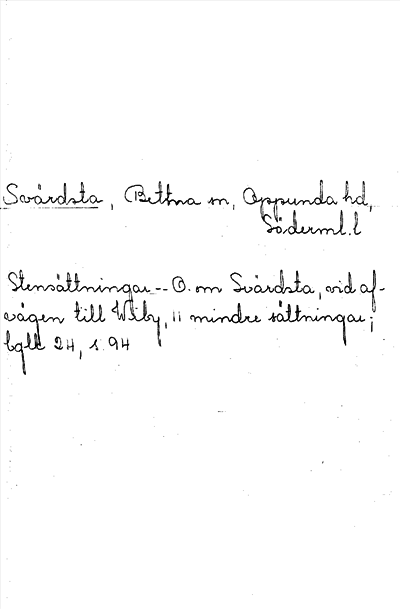 Svärdsta, Bettna sn, Oppunda hd,
Söderml. l
Stensättningar -- O. om Svärdsta, vid af-
vägen till Wiby, 11 mindre sättningar;
bglt 24, s. 94